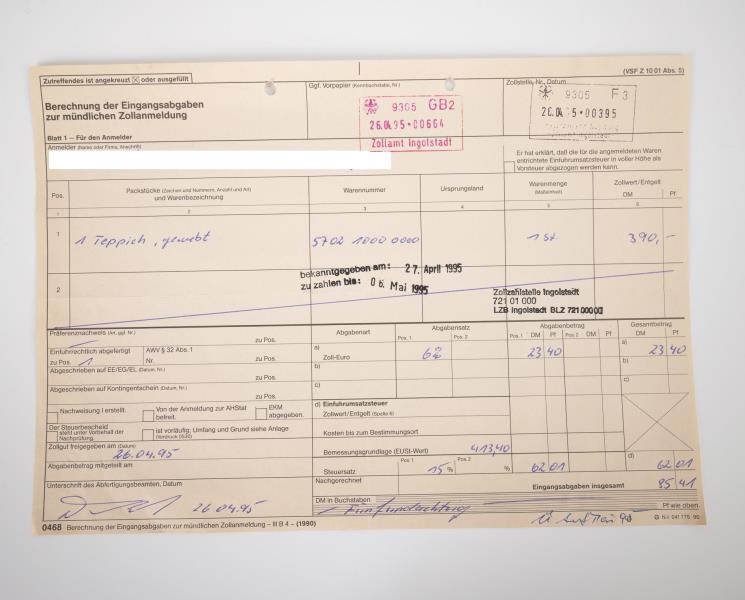 Zutreffendes ist angekreuzt ☒ oder ausgefüllt
(VSF Z 10 01 Abs. 5)
Berechnung der Eingangsabgaben
zur mündlichen Zollanmeldung
Ggf. Vorpapier (Kennbuchstabe, Nr)
Zollstelle, Nr., Datum
9305 GB2
26.04.95*00664
Zollamt Ingolstadt
9305 F3
26.04.5*00395
Blatt 1 – Für den Anmelder
Anmelder (Name oder Firma, Anschrift)
Er hat erklärt, daß die für die angemeldeten Waren
entrichtete Einfuhrumsatzsteuer in voller Höhe als
Vorsteuer abgezogen werden kann.
Pos. Packstücke (Zeichen und Nummern, Anzahl und Art) und Warenbezeichnung Warennummer Ursprungsland Warenmenge (Maßeinheit) Zollwert/Entgelt DM Pf
1 2 3 4 5 6
1 1 Teppich, gewebt 5702 1000 0000 1 St. 390,-
bekanntgegeben am: 27. April 1995
zu zahlen bis: 06. Mai 1995
2
Zollzahlstelle Ingolstadt
721 01 000
LZB Ingolstadt BLZ 721 000 00
Präferenznachweis (Art, ggf. Nr.) zu Pos.
Abgabenart Abgabensatz Pos. 1 Pos. 2 Abgabenbetrag Pos. 1 DM Pf Pos. 2 DM Pf Gesamtbetrag DM Pf
Einfuhrrechtlich abgefertigt AWV § 32 Abs. 1
zu Pos. 1 Nr. zu Pos.
a) Zoll-Euro 6% 23 40 a) 23 40
Abgeschrieben auf EE/EG/EL (Datum, Nr.) zu Pos.
b) b)
Abgeschrieben auf Kontingentschein (Datum, Nr.) zu Pos.
c) c)
Nachweisung I erstellt. Von der Anmeldung zur AHStat befreit. EKM abgegeben.
d) Einfuhrumsatzsteuer
Zollwert/Entgelt (Spalte 6)
Der Steuerbescheid
steht unter Vorbehalt der Nachprüfung. ist vorläufig; Umfang und Grund siehe Anlage
(Vordruck 0530)
Kosten bis zum Bestimmungsort
Zollgut freigegeben am (Datum)
26.04.95
Bemessungsgrundlage (EUSt-Wert) 413,40
Abgabenbetrag mitgeteilt am
Pos. 1 Pos. 2
Steuersatz 15 % % 62 01 d) 62 01
Unterschrift des Abfertigungsbeamten, Datum
26.04.95
Nachgerechnet
Eingangsabgaben insgesamt 85 41
DM in Buchstaben
Fünfundachtzig
Pf wie oben.
0468 Berechnung der Eingangsabgaben zur mündlichen Zollanmeldung – III B 4 – (1990)